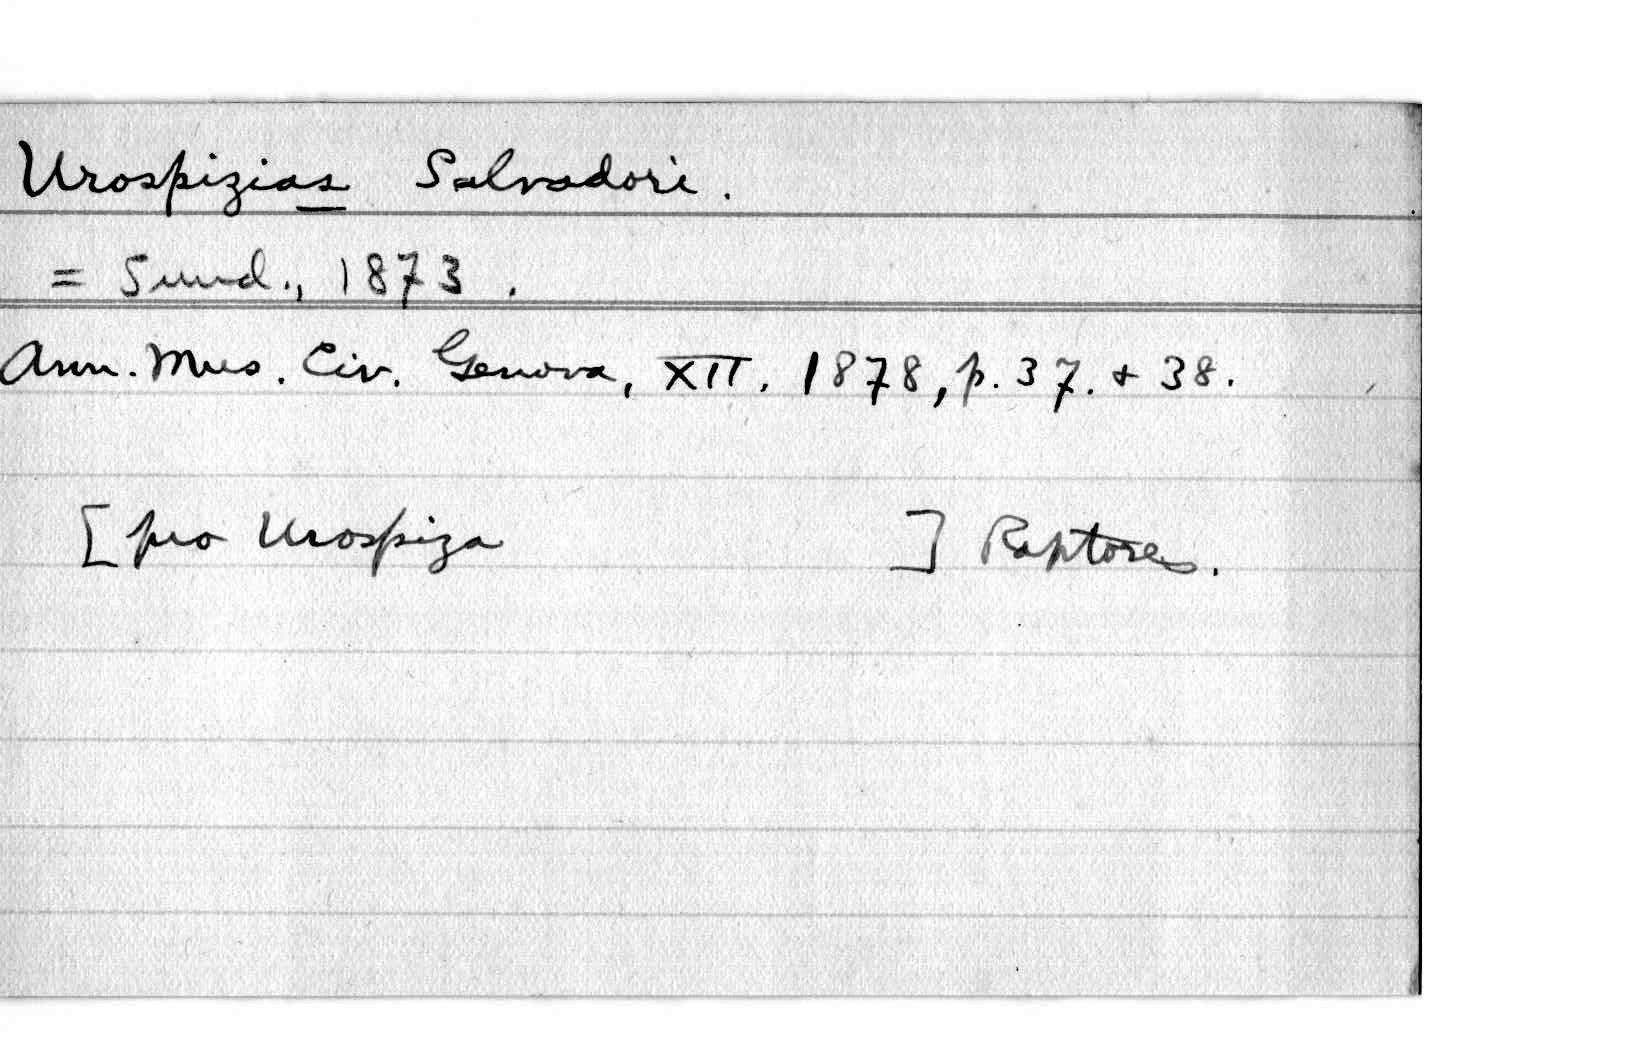 Urospizias Salvadori.
= Sund., 1873.
Ann. Mus. Civ. Genova, XII. 1878, p. 37. & 38.
[pro Urospiza ] Raptores.